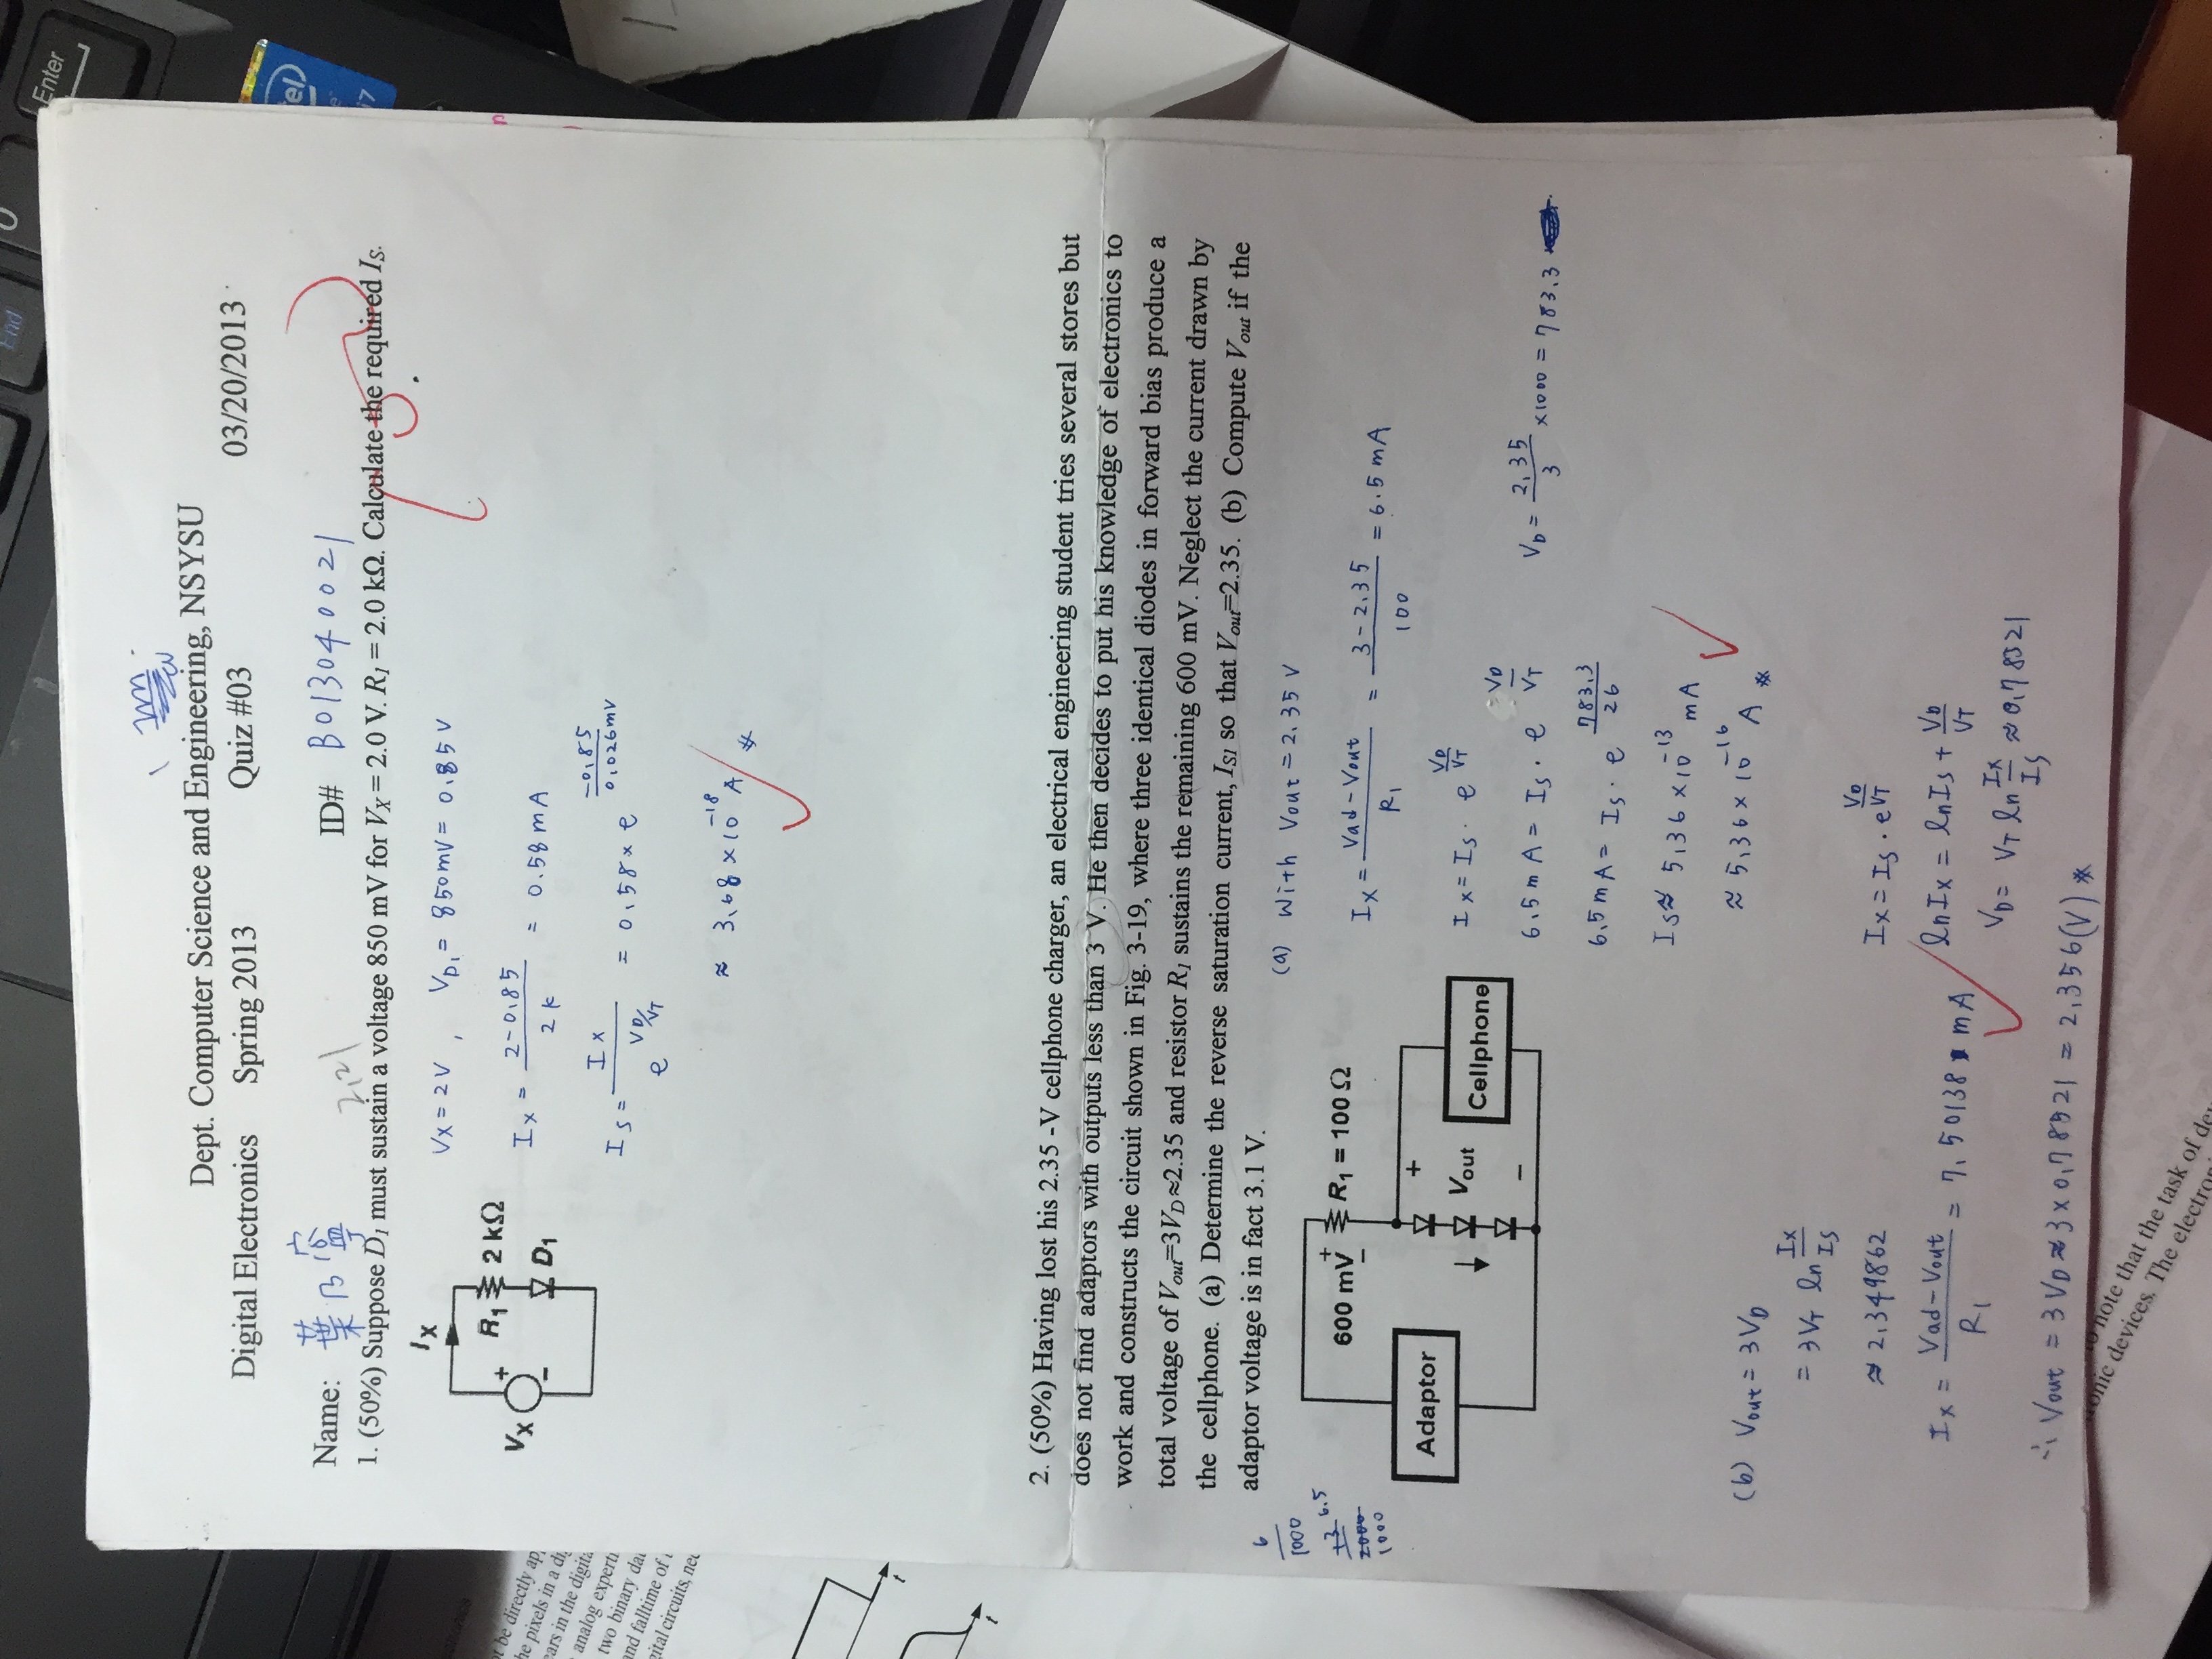 End
Enter
Dept. Computer Science and Engineering, NSYSU
Digital Electronics Spring 2013 Quiz #03 03/20/2013
Name: 葉乃寧 ID# B013040021
2.21
1. (50%) Suppose D1 must sustain a voltage 850 mV for VX = 2.0 V. R1 = 2.0 kΩ. Calculate the required IS.
IX
R1 2 kΩ
VX + −
D1
Vx = 2V , VD1 = 850mV = 0.85 V
Ix = 2-0.85 / 2k = 0.58 mA
Is = Ix / e^VD/VT = 0.58 × e^-0.85/0.026mV
≈ 3.68 × 10^-18 A
2. (50%) Having lost his 2.35 -V cellphone charger, an electrical engineering student tries several stores but
does not find adaptors with outputs less than 3 V. He then decides to put his knowledge of electronics to
work and constructs the circuit shown in Fig. 3-19, where three identical diodes in forward bias produce a
total voltage of Vout=3VD≈2.35 and resistor R1 sustains the remaining 600 mV. Neglect the current drawn by
the cellphone. (a) Determine the reverse saturation current, IS1 so that Vout=2.35. (b) Compute Vout if the
adaptor voltage is in fact 3.1 V.
6
1000
6.5
2000
1000
600 mV + − R1 = 100 Ω
Adaptor
+
Vout
−
Cellphone
(a) With Vout = 2.35 V
Ix = Vad-Vout / R1 = 3-2.35 / 100 = 6.5 mA
Ix = Is · e^VD/VT
6.5 mA = Is · e^VD/VT
VD = 2.35 / 3 ×1000 = 783.3
6.5 mA = Is · e^783.3/26
Is ≈ 5.36 × 10^-13 mA
≈ 5.36 × 10^-16 A
(b) Vout = 3VD
= 3VT ln Ix/Is
≈ 2.349862
Ix = Vad-Vout / R1 = 7.50138 mA
Ix = Is · e^VD/VT
lnIx = lnIs + VD/VT
VD = VT ln Ix/Is ≈ 0.78521
∴ Vout = 3VD ≈ 3 × 0.78521 = 2.356(V)
to note that the task of
onic devices. The
t be directly
he pixels in a
ears in the
analog
two binary
and falltime of
gital circuits,
t
t